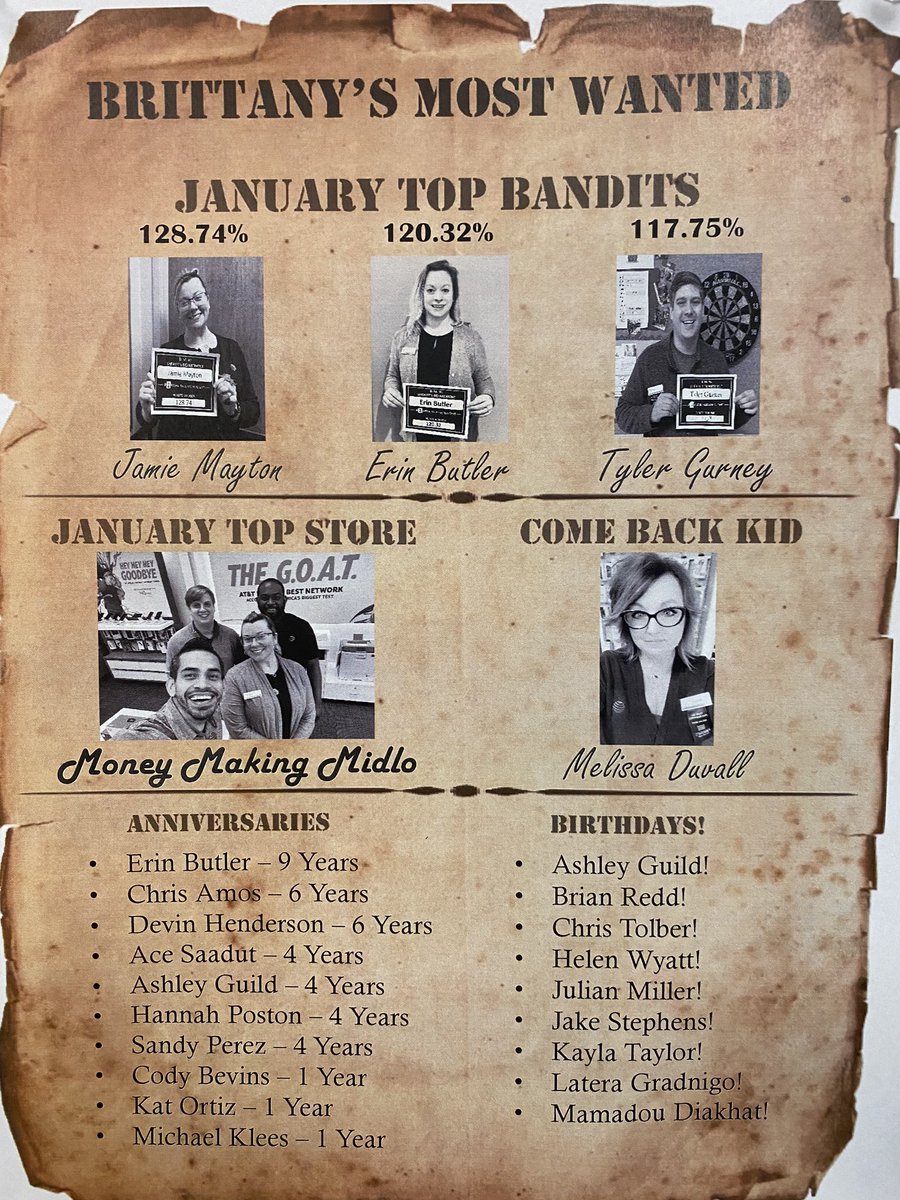 BRITTANY'S MOST WANTED
JANUARY TOP BANDITS
128.74% 120.32% 117.75%
Jamie Mayton
128.74
Erin Butler
120.32
Jamie Mayton Erin Butler Tyler Gurney
JANUARY TOP STORE
COME BACK KID
HEY HEY HEY
GOODBYE
THE G.O.A.T.
AT&T BEST NETWORK
BIGGEST TEST.
Money Making Midlo
Melissa Duvall
ANNIVERSARIES
• Erin Butler – 9 Years
• Chris Amos – 6 Years
• Devin Henderson – 6 Years
• Ace Saadut – 4 Years
• Ashley Guild – 4 Years
• Hannah Poston – 4 Years
• Sandy Perez – 4 Years
• Cody Bevins – 1 Year
• Kat Ortiz – 1 Year
• Michael Klees – 1 Year
BIRTHDAYS!
• Ashley Guild!
• Brian Redd!
• Chris Tolber!
• Helen Wyatt!
• Julian Miller!
• Jake Stephens!
• Kayla Taylor!
• Latera Gradnigo!
• Mamadou Diakhat!